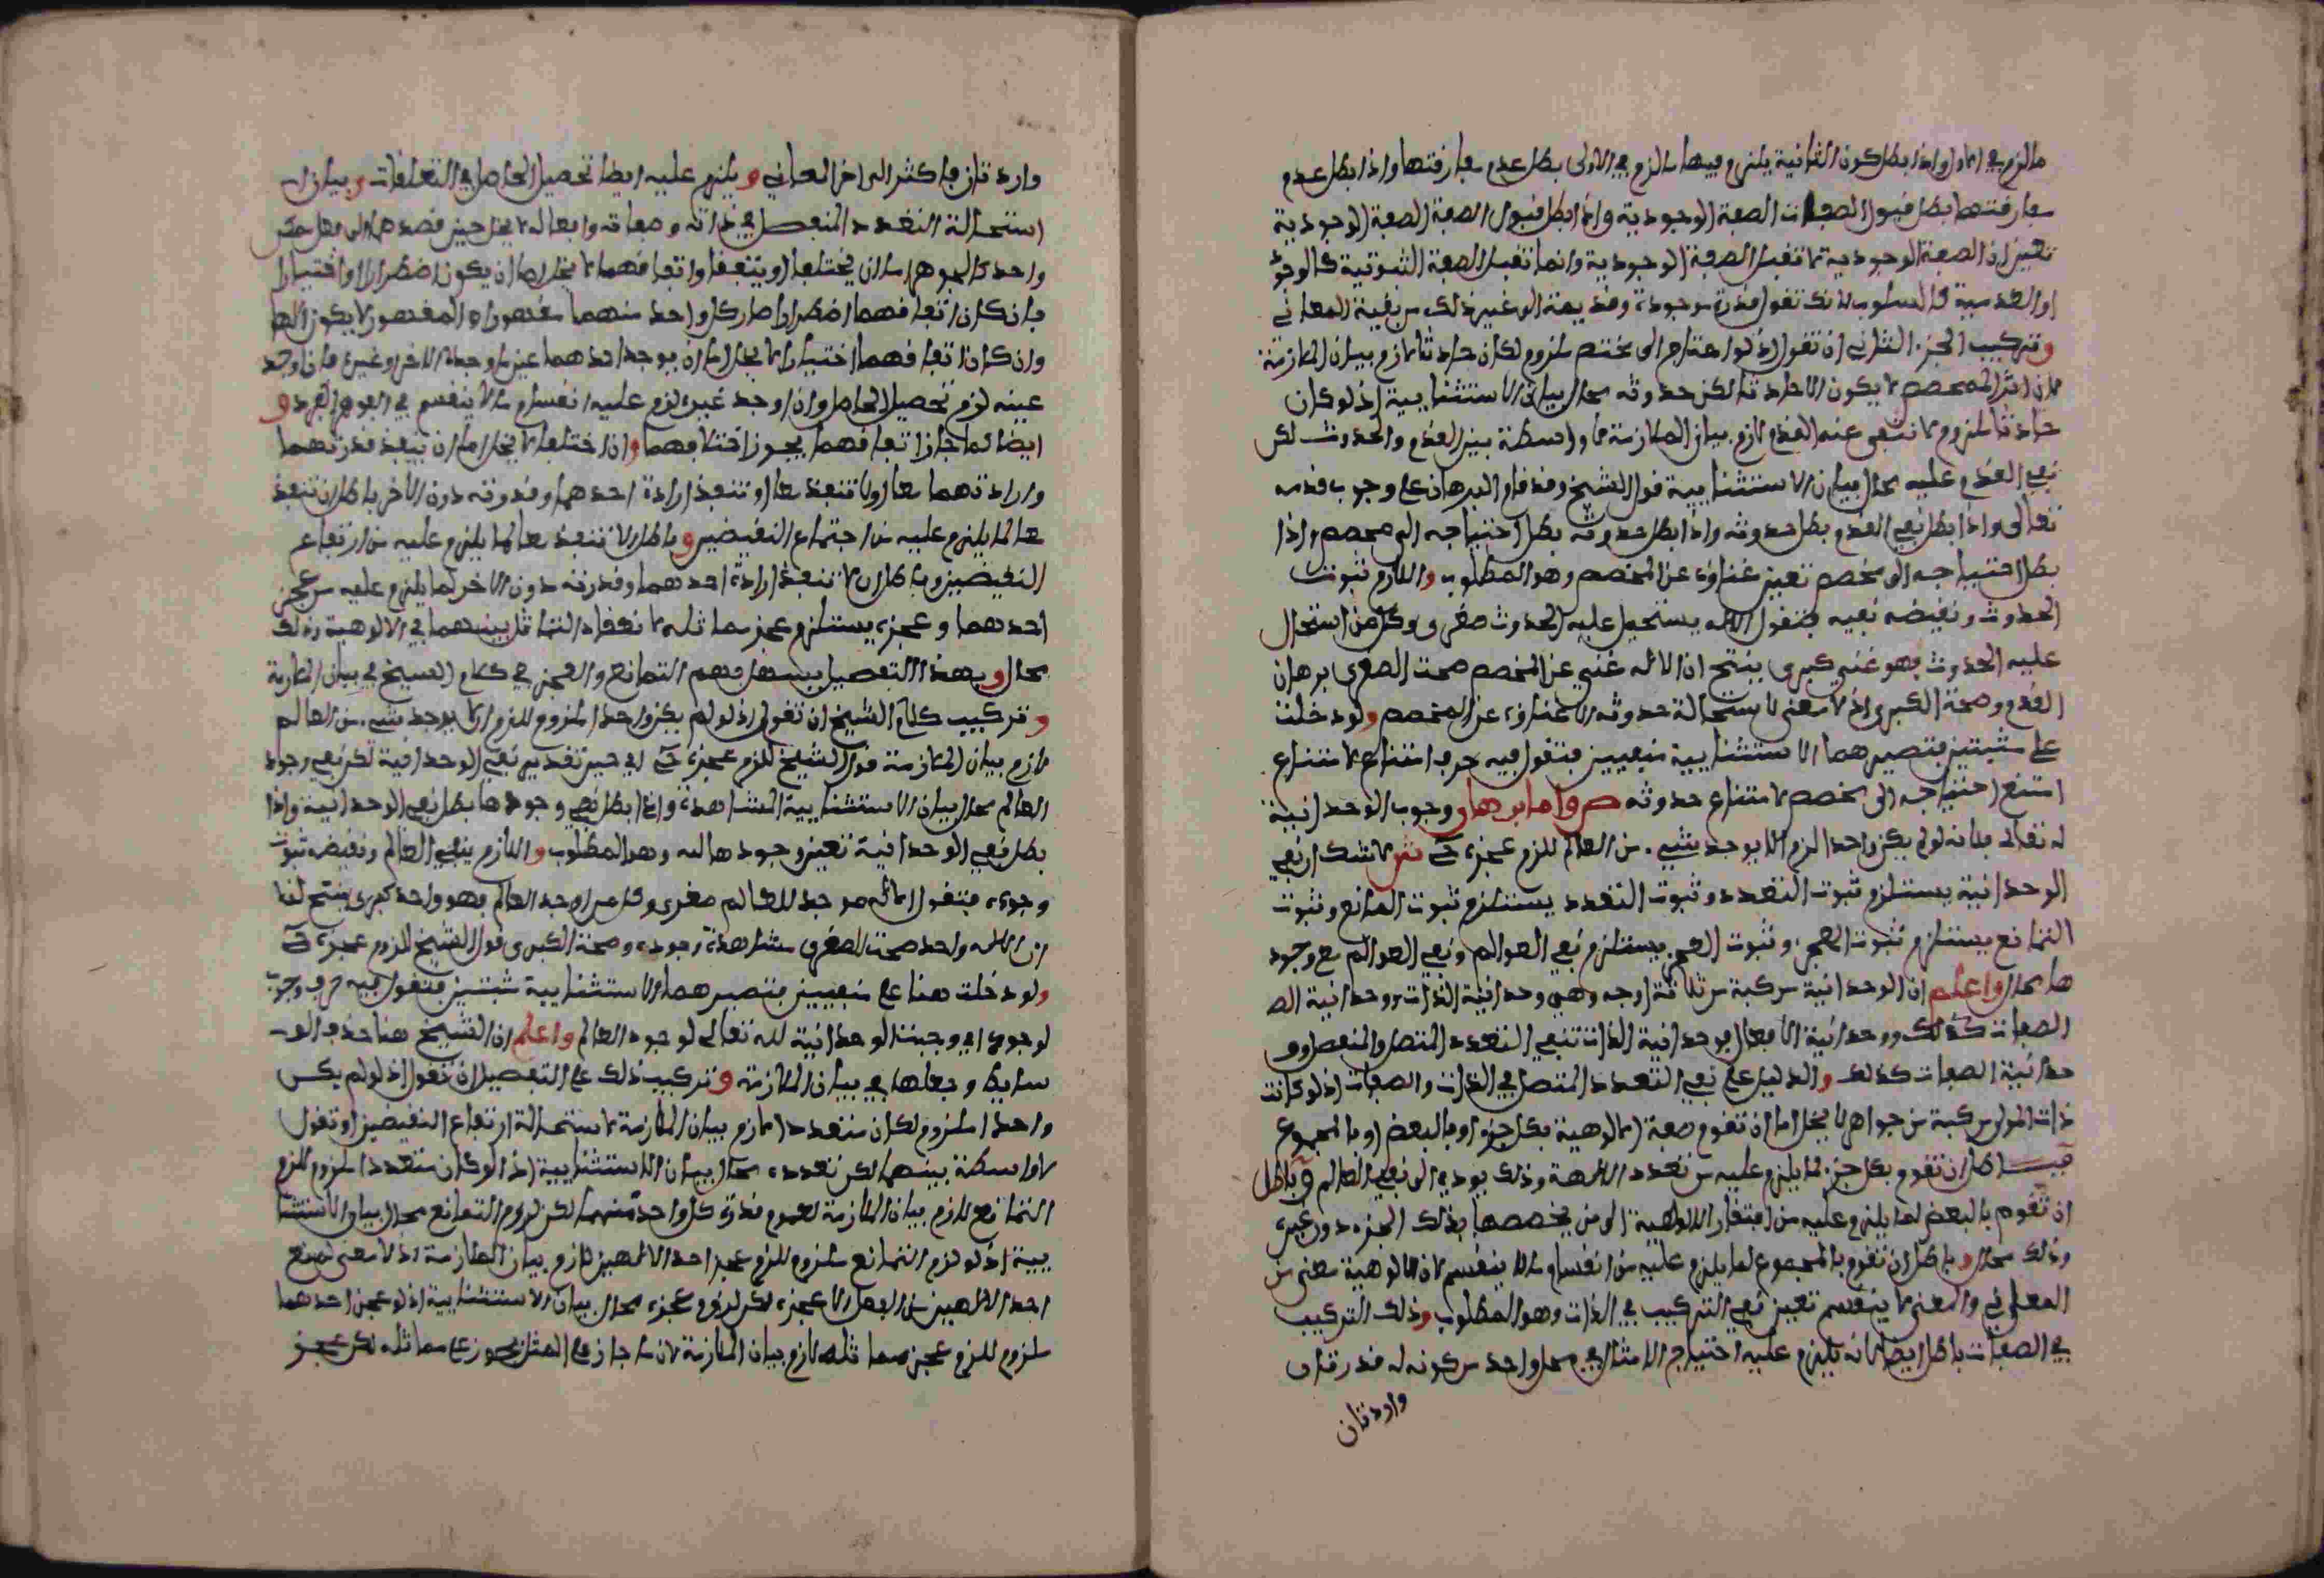 ما لزم في الاول واذا بطل كون الثانية يلزم فيها ما لزم في الاولى بطل عدم مفارقتها واذا بطل عدم
مفارقتها بطل قبول الصفات الصفة الوجودية واذا بطل قبول الصفة الصفة الوجودية
تعين ان الصفة الوجودية لا تقبل الصفة الوجودية وانما تقبل الصفة الثبوتية كالوجود
او العدمية كالسلوب لانك تقول قدرة موجودة وقديمة الى غير ذلك من بقية المعاني
وتركيب الجزء الثاني ان تقول اذ لو احتاج الى مخصص ملزوم لكان حادثا لازم بيان الملازمة
لان اثر المخصص لا يكون الا حادثا لكن حدوثه محال بيان الاستثنايية اذ لو كان
حادثا ملزوم لانتفى عنه القدم لازم بيان الملازمة لا واسطة بين القدم والحدوث لكن
نفي القدم عليه محال بيان الاستثنايية قول الشيخ وقد قام البرهان على وجوب قدمه
تعالى واذا بطل نفي القدم بطل حدوثه واذا بطل حدوثه بطل احتياجه الى مخصص واذا
بطل احتياجه الى مخصص تعين غناؤه عن المخصص وهو المطلوب واللازم ثبوت
الحدوث ونقيضه نفيه فتقول الاله يستحيل عليه الحدوث صغرى وكل من استحال
عليه الحدوث فهو غني كبرى ينتج ان الاله غني عن المخصص صحت الصغرى برهان
القدم وصحة الكبرى اذ لا معنى لاستحالة حدوثه الا غناؤه عن المخصص ولو دخلت
على مثبتين فتصيرهما الاستثنايية منفيين فتقول فيه حرف امتناع لامتناع
امتنع احتياجه الى مخصص لامتناع حدوثه ص واما برهان وجوب الوحدانية
له تعالى فلانه لو لم يكن واحدا لزم الا يوجد شيء من العالم للزوم عجزه ش لا شك ان نفي
الوحدانية يستلزم ثبوت التعدد وثبوت التعدد يستلزم ثبوت التمانع وثبوت
التمانع يستلزم ثبوت العجز وثبوت العجز يستلزم نفي العوالم ونفي العوالم مع وجود
ها محال واعلم ان الوحدانية مركبة من ثلاثة اوجه وهي وحدانية الذات ووحدانية الص
الصفات كذلك ووحدانية الافعال فوحدانية الذات تنفي التعدد المتصل والمنفصل وو
حدانية الصفات كذلك والدليل على نفي التعدد المتصل في الذات والصفات اذ لو كانت
ذات المولى مركبة من جواهر لا يخلو اما ان تقوم صفة الالوهية بكل جزء او بالبعض او بالمجموع
ان تقوم بكل جزء لما يلزم عليه من تعدد الالهة وذلك يودي الى نفي العالم وباطل
ان تقوم بالبعض لما يلزم عليه من افتقار الالوهية الى من يخصصها بذلك الجزء دون غيره
وذلك محال وباطل ان تقوم بالمجموع لما يلزم عليه من انقسام ما لا ينقسم لان الالوهية معنى من
المعاني والمعنى لا ينقسم تعين نفي التركيب في الذات وهو المطلوب وذلك التركيب
في الصفات باطل ايضا لانه يلزم عليه اجتماع الامثال في محل واحد من كونه له قدرتان
وارادتان
وارادتان فاكثر الى اخر المعاني ويلزم عليه ايضا تحصيل الحاصل في التعلقات وبيان
استحالة التعدد المنفصل في ذاته وصفاته وافعاله لا يخلو حين قصدهما الى فعل ممكن
واحد كالجوهر اما ان يختلفا او يتفقا واتفاقهما لا يخلو اما ان يكون اضطرارا او اختيارا
فان كان اتفاقهما اضطرارا صار كل واحد منهما مقهورا والمقهور لا يكون الها
وان كان اتفاقهما اختيارا لا يخلو اما ان يوجد احدهما عين ما وجده الاخر او غيره فان اوجد
عينه لزم تحصيل الحاصل وان اوجد غيره لزم عليه انقسام ما لا ينقسم في الجوهر الفرد و
ايضا كما جاز اتفاقهما يجوز اختلافهما وان اختلفا لا يخلو اما ان تنفذ قدرتهما
وارادتهما معا اولا تنفذ معا او تنفذ ارادة احدهما وقدرته دون الاخر باطل ان تنفذ
معا لما يلزم عليه من اجتماع النقيضين وباطل الا تنفذ معا لما يلزم عليه من ارتفاع
النقيضين وباطل ان لا تنفذ ارادة احدهما وقدرته دون الاخر لما يلزم عليه من عجز
احدهما وعجزه يستلزم عجز مماثله لانعقاد التماثل بينهما في الالوهية وذلك
محال وبهذا التفصيل يسهل فهم التمانع والعجز في كلام الشيخ في بيان الملازمة
وتركيب كلام الشيخ ان تقول اذ لو لم يكن واحدا ملزوم للزم الا يوجد شيء من العالم
لازم بيان الملازمة قول الشيخ للزوم عجزه اي حين تقدير نفي الوحدانية لكن نفي وجود
العالم محال بيان الاستثنايية المشاهدة واذا بطل نفي وجودها بطل نفي الوحدانية واذا
بطل نفي الوحدانية تعين وجودها له وهو المطلوب واللازم نفي العالم ونقيضه ثبوت
وجوده فتقول الاله موجد للعالم صغرى وكل من اوجد العالم فهو واحد كبرى ينتج لنا
ان الاله واحد صحت الصغرى مشاهدة وجوده وصحة الكبرى قول الشيخ للزوم عجزه
ولو دخلت هنا على منفيين فتصيرهما الاستثنايية مثبتين فتقول فيه حرف وجوب
لوجوب اي وجبت الوحدانية لله تعالى لوجود العالم واعلم ان الشيخ هنا حذف
وجعلها في بيان الملازمة وتركيب ذلك على التفصيل ان تقول اذ لو لم يكن
واحدا ملزوم لكان متعددا لازم بيان الملازمة لاستحالة ارتفاع النقيضين او تقول
لا واسطة بينهما لكن تعدده محال بيان الاستثنايية اذ لو كان متعددا ملزوم للزم
التمانع لازم بيان الملازمة لعموم قدرة كل واحد منهما لكن لزوم التمانع محال بيان الاستثنا
يية اذ لو لزم التمانع ملزوم للزم عجز احد الالهين لازم بيان الملازمة اذ لا معنى لمنع
احد الالهين من الفعل الا عجزه لكن لزوم عجزه محال بيان الاستثنايية اذ لو عجز احدهما
ملزوم للزم عجز مماثله لازم بيان الملازمة لان ما جاز على المثل يجوز على مماثله لكن عجز